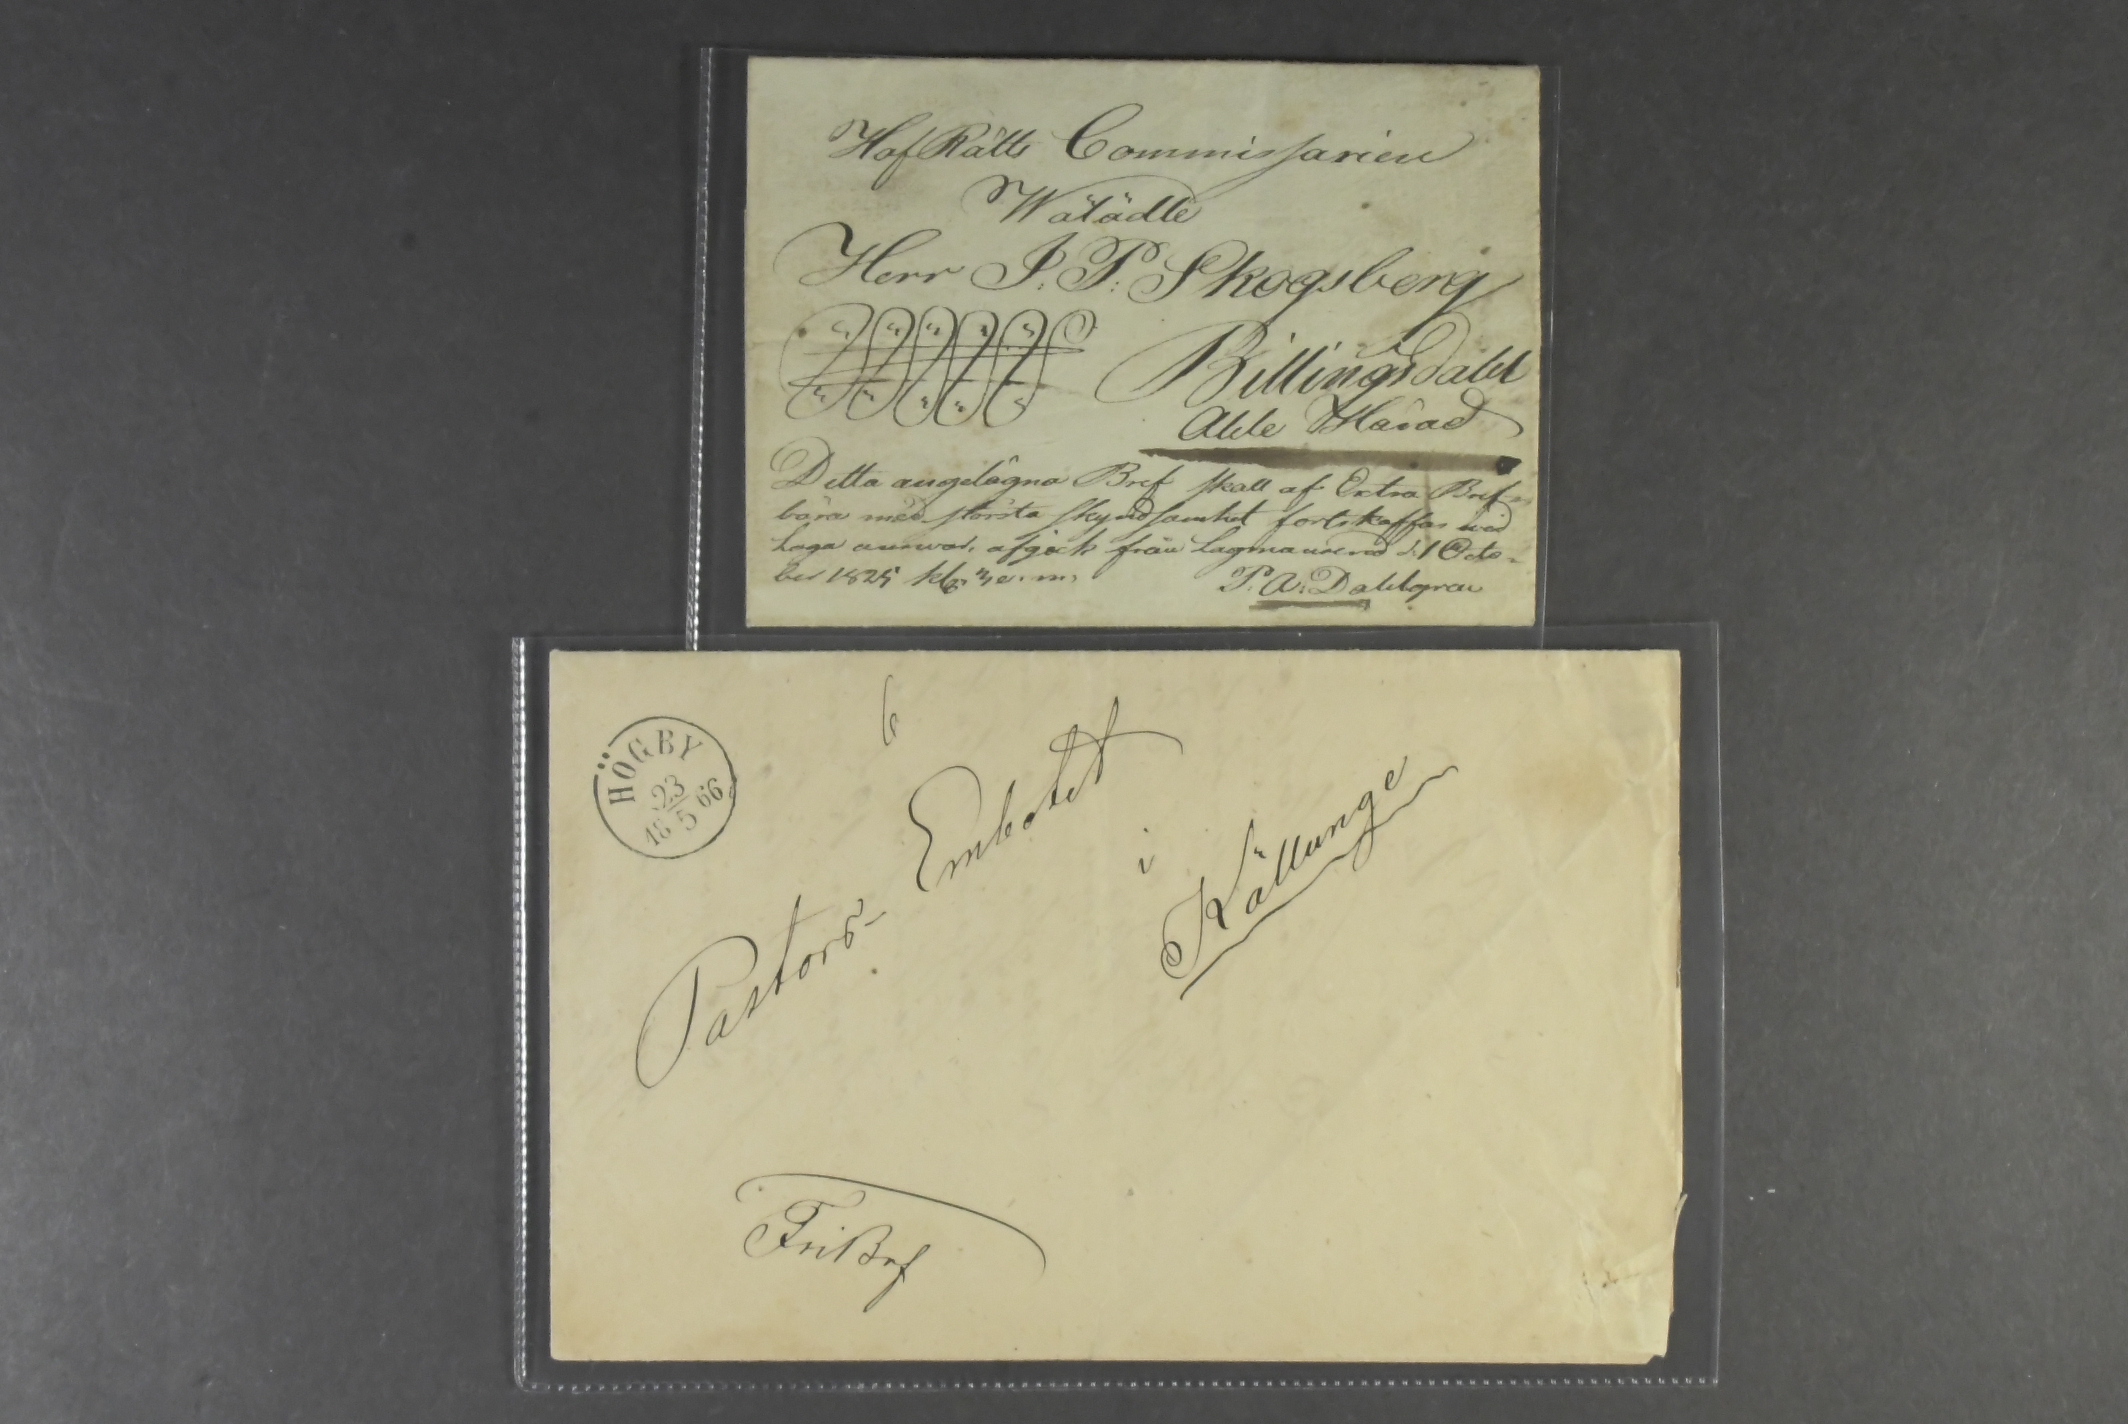 HofRätts Commissarien
Wälädle
Herr J. P. Skogsberg
Billingsdahl
Ahle Härad
Detta angelägna Bref skall af Extra Bref-
bära med största skyndsamhet fortskaffas wid
laga answar, afgick från Lagmansered d. 1 Octo-
ber 1825 kl. e. m.
P. A. Dahlgren
HÖGBY
23
5
1866
6
Pastors-Embetet
i
Källunge
FriBref